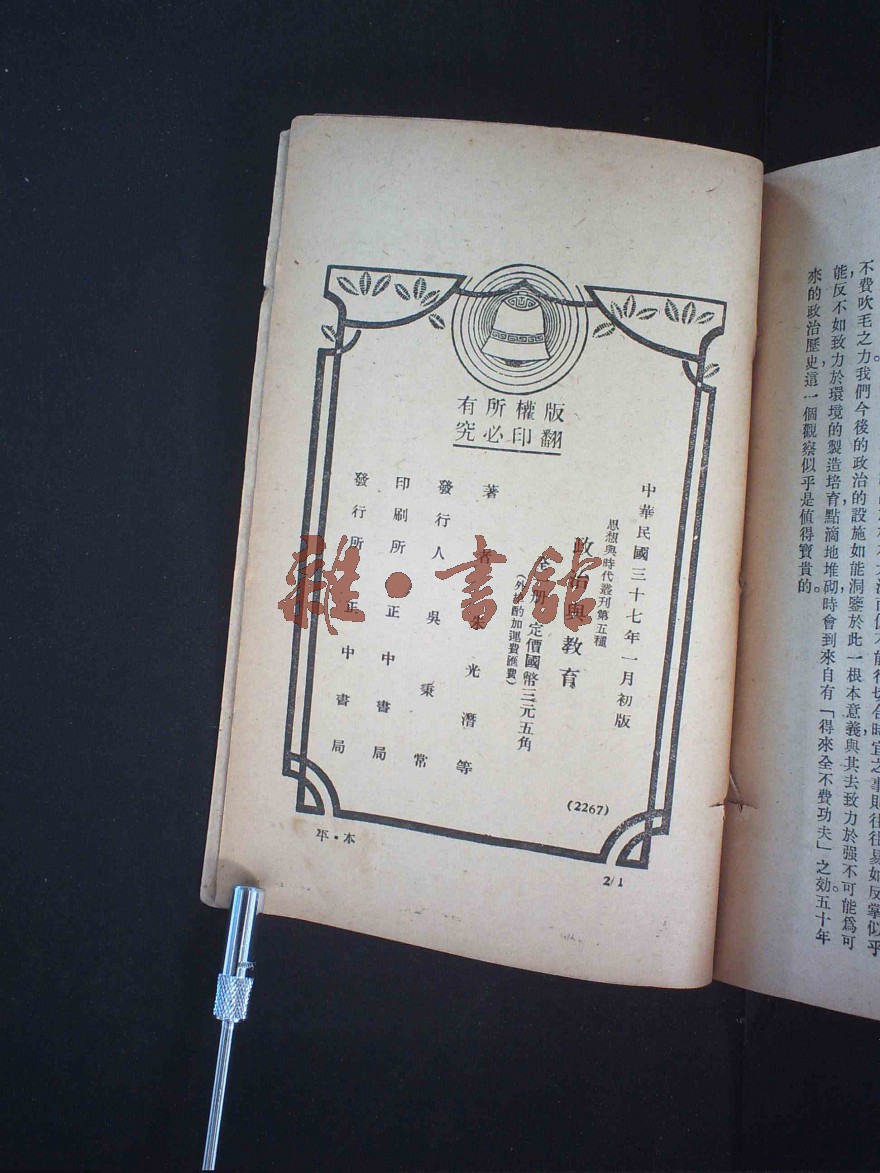 不費吹毛之力。我們今後的政治的設施如能洞鑒於此一根本意義與其去致力於强不可能爲可
能,反不如致力於環境的製造培育點滴地堆砌時會到來自有「得來全不費功夫」之効。五十年
來的政治歷史,這一個觀察似乎是值得寶貴的。
版權所有
翻印必究
中華民國三十七年一月初版
思想與時代叢刊第五種
政治與教育
全一册 定價國幣三元五角
(外埠酌加運費匯費)
著者 朱光潛等
發行人 吳秉常
印刷所 正中書局
發行所 正中書局
(2267)
本・平
2/1
雜・書館